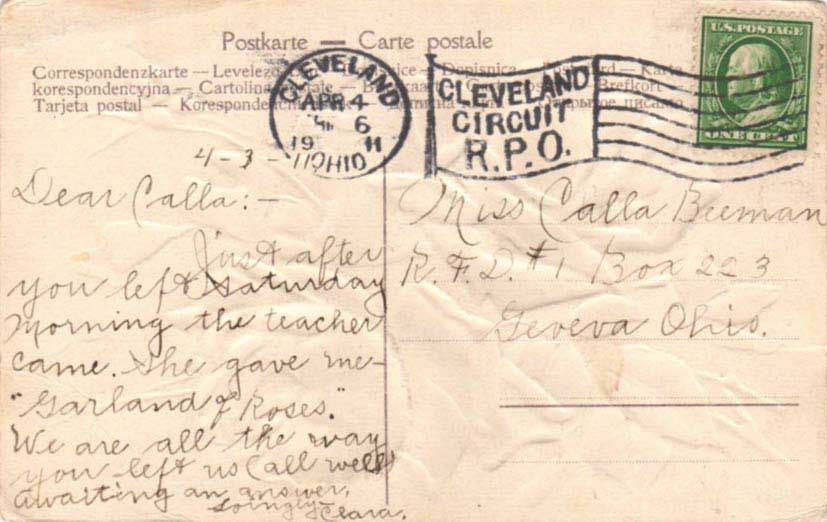 Postkarte — Carte postale
Correspondenzkarte — Levelező
korespondencyjna — Cartolina
Tarjeta postal — Korespond
Dopisnica
Karte
Brefkort
открытое письмо
CLEVELAND
APR 4
6
19 11
OHIO
CLEVELAND
CIRCUIT
R.P.O.
U.S. POSTAGE
ONE CENT
4-3-11
Dear Calla:—
Just after
you left Saturday
morning the teacher
came. She gave me—
"Garland of Roses."
We are all the way
you left us (all well)
Awaiting an answer,
Lovingly
Clara.
Miss Calla Beeman
R.F.D. #1 Box 223
Geveva Ohio.